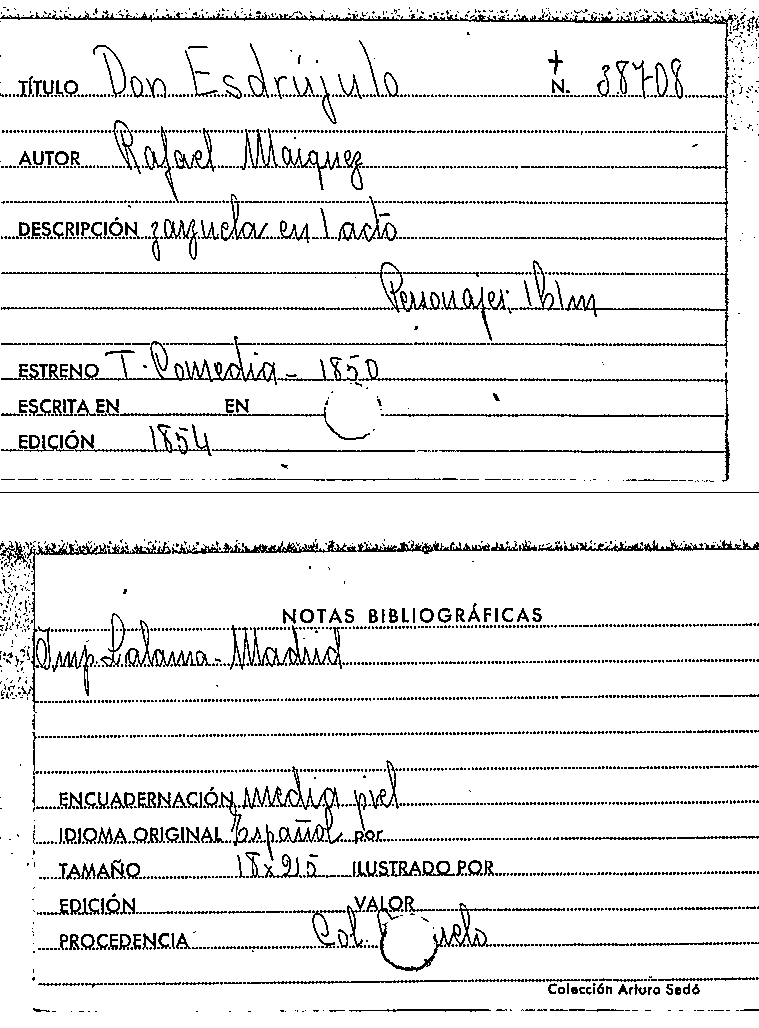 TÍTULO Don Esdrújulo + N. 38708
AUTOR Rafael Maiquez
DESCRIPCIÓN zarzuela en 1 acto
Personajes: 1h 1m
ESTRENO T. Comedia - 1850
ESCRITA EN EN
EDICIÓN 1854
NOTAS BIBLIOGRÁFICAS
Imp. Lalama - Madrid
ENCUADERNACIÓN media piel
IDIOMA ORIGINAL Español por
TAMAÑO 18x
ILUSTRADO POR
EDICIÓN VALOR
PROCEDENCIA Col.
Colección Arturo Sedó